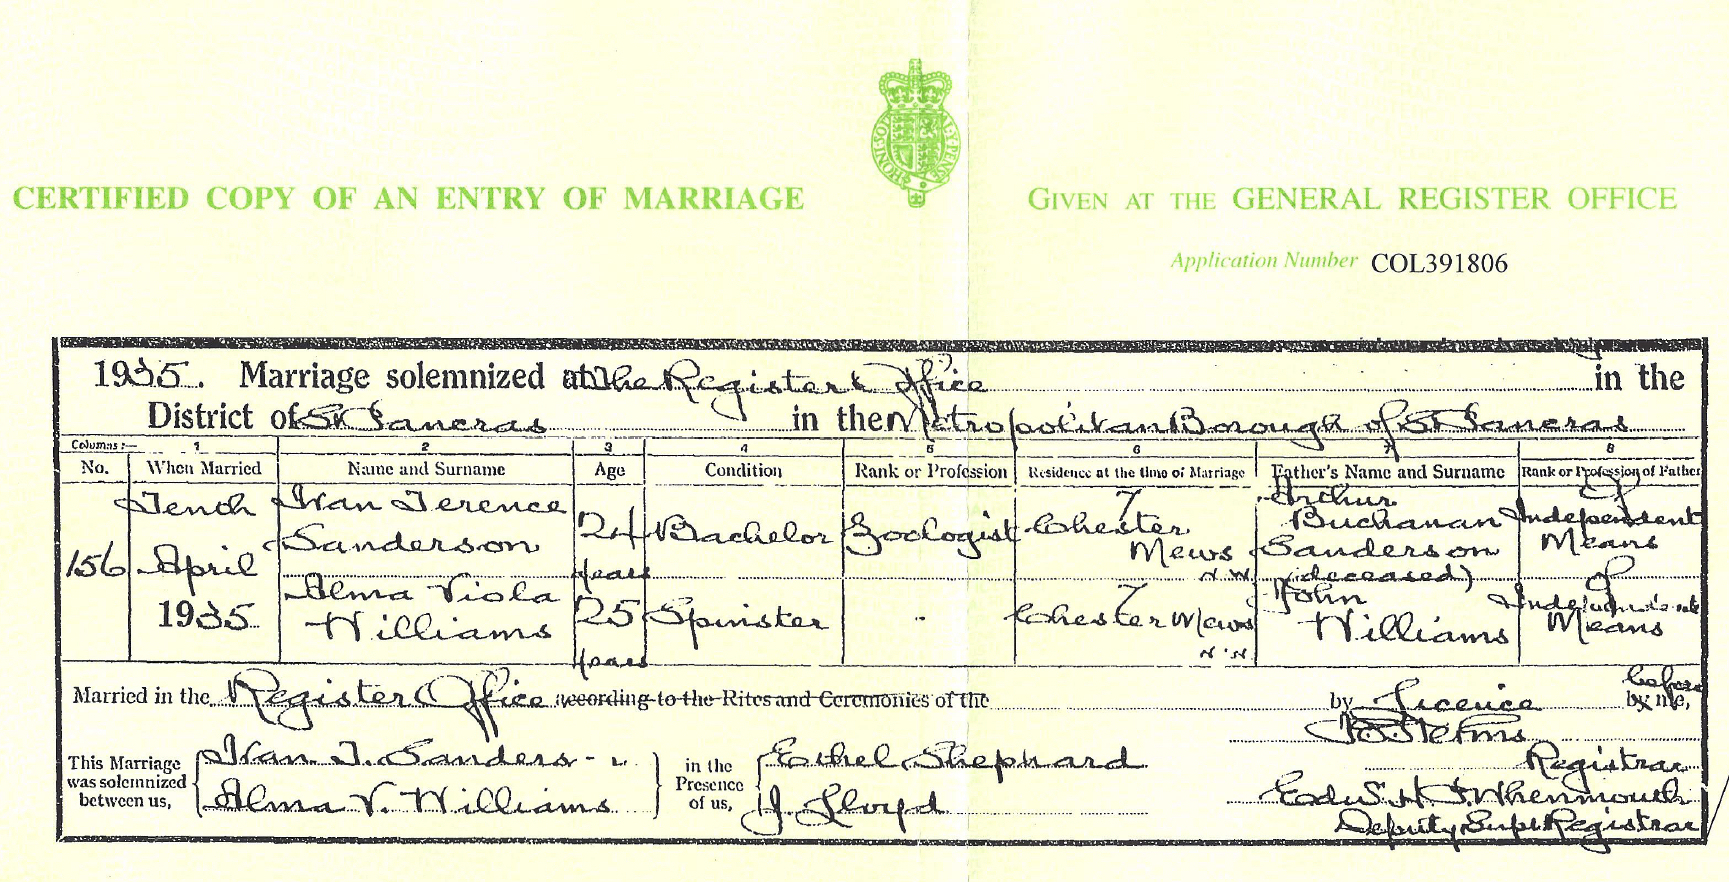 HONI·SOI
AL·Y·PENSE
CERTIFIED COPY OF AN ENTRY OF MARRIAGE
GIVEN AT THE GENERAL REGISTER OFFICE
Application Number COL391806
1935. Marriage solemnized at The Register Office in the
District of St Pancras in the Metropolitan Borough of St Pancras
Columns:— 1 2 3 4 5 6 7 8
No. When Married Name and Surname Age Condition Rank or Profession Residence at the time of Marriage Father's Name and Surname Rank or Profession of Father
156 Tenth April 1935
Ivan Terence Sanderson 24 years Bachelor Zoologist 7 Chester Mews N.W. Arthur Buchanan Sanderson (deceased) Of Independent Means
Alma Viola Williams 25 years Spinster - 7 Chester Mews N.W. John Williams Of Independent Means
Married in the Register Office according to the Rites and Ceremonies of the by Licence before by me,
This Marriage was solemnized between us,
Ivan T. Sanderson
Alma V. Williams
in the Presence of us,
Ethel Shephard
J. Lloyd
Registrar
Deputy Supt Registrar